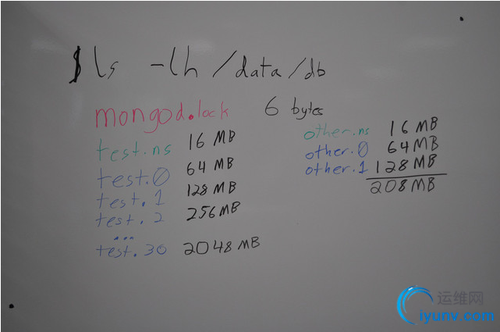 $ls -lh /data/db
mongod.lock 6 bytes
test.ns 16 MB
test.0 64 MB
test.1 128 MB
test.2 256 MB
...
test.30 2048 MB
other.ns 16 MB
other.0 64 MB
other.1 128 MB
208 MB
运维网
iyunv.com